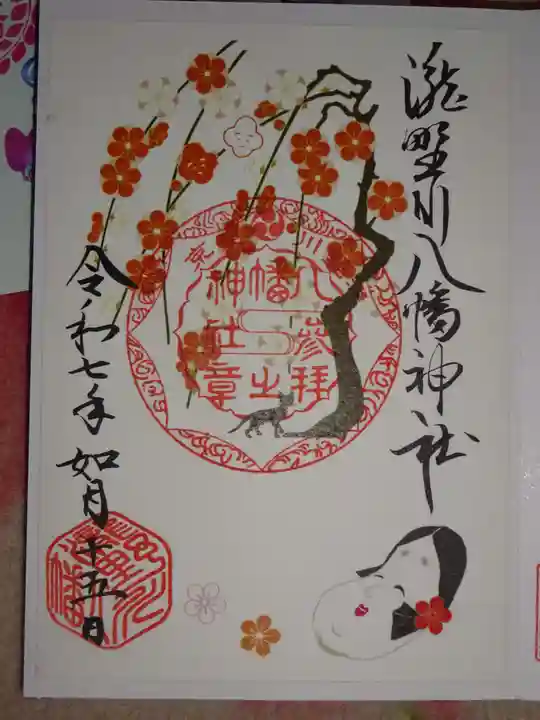 瀧野川八幡神社
八幡神社
参拝之章
令和七年 如月 十五日